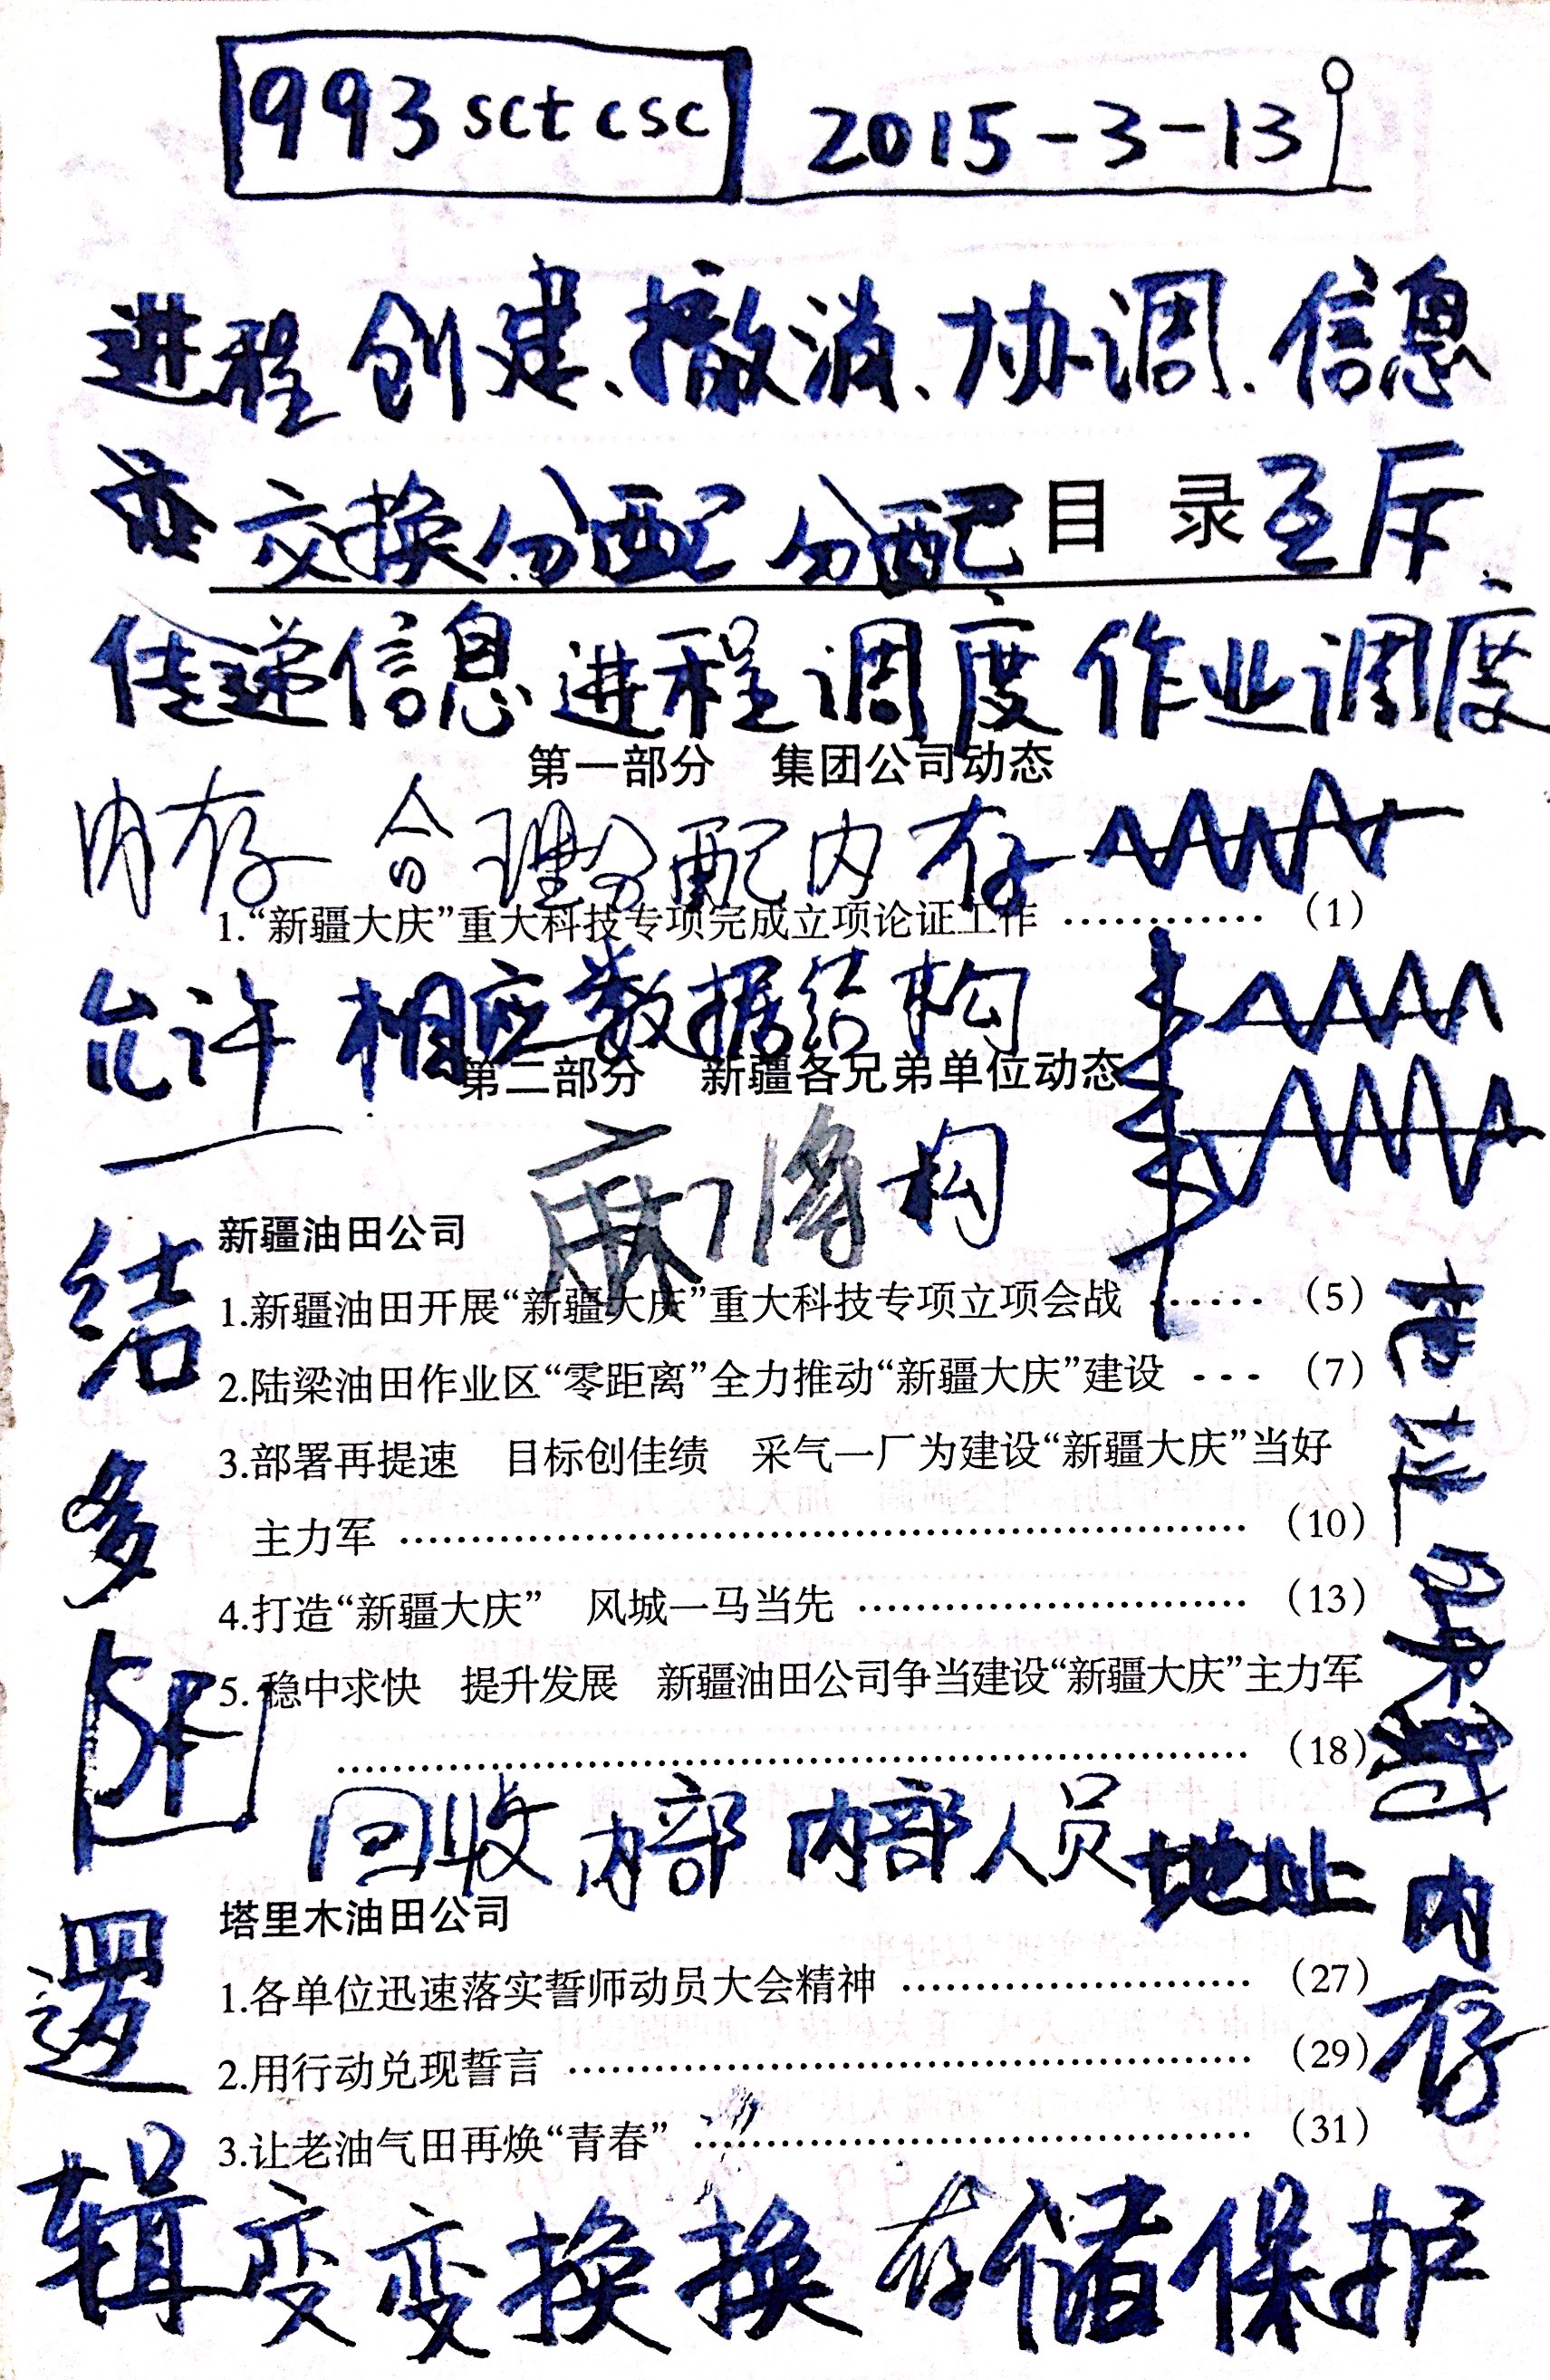 993 sct csc 2015-3-13
进程 创建、撤消、协调、信息
交换分配 分配 目 录 互斥
传递信息 进程 调度 作业调度
第一部分 集团公司动态
内存 合理分配内存
1.“新疆大庆”重大科技专项完成立项论证工作 ………… (1)
允许 相应数据结构
第二部分 新疆各兄弟单位动态
麻将 构
新疆油田公司
结
1.新疆油田开展“新疆大庆”重大科技专项立项会战 …… (5)
2.陆梁油田作业区“零距离”全力推动“新疆大庆”建设 … (7)
3.部署再提速 目标创佳绩 采气一厂为建设“新疆大庆”当好
多
主力军 ………………………… (10)
4.打造“新疆大庆” 风城一马当先 ………………… (13)
5.稳中求快 提升发展 新疆油田公司争当建设“新疆大庆”主力军
………………………… (18)
回收 内部 内部人员 地址 内存
塔里木油田公司
逻
1.各单位迅速落实誓师动员大会精神 ………………… (27)
2.用行动兑现誓言 ………………………… (29)
3.让老油气田再焕“青春” ………………………… (31)
辑变变换换 存储保护